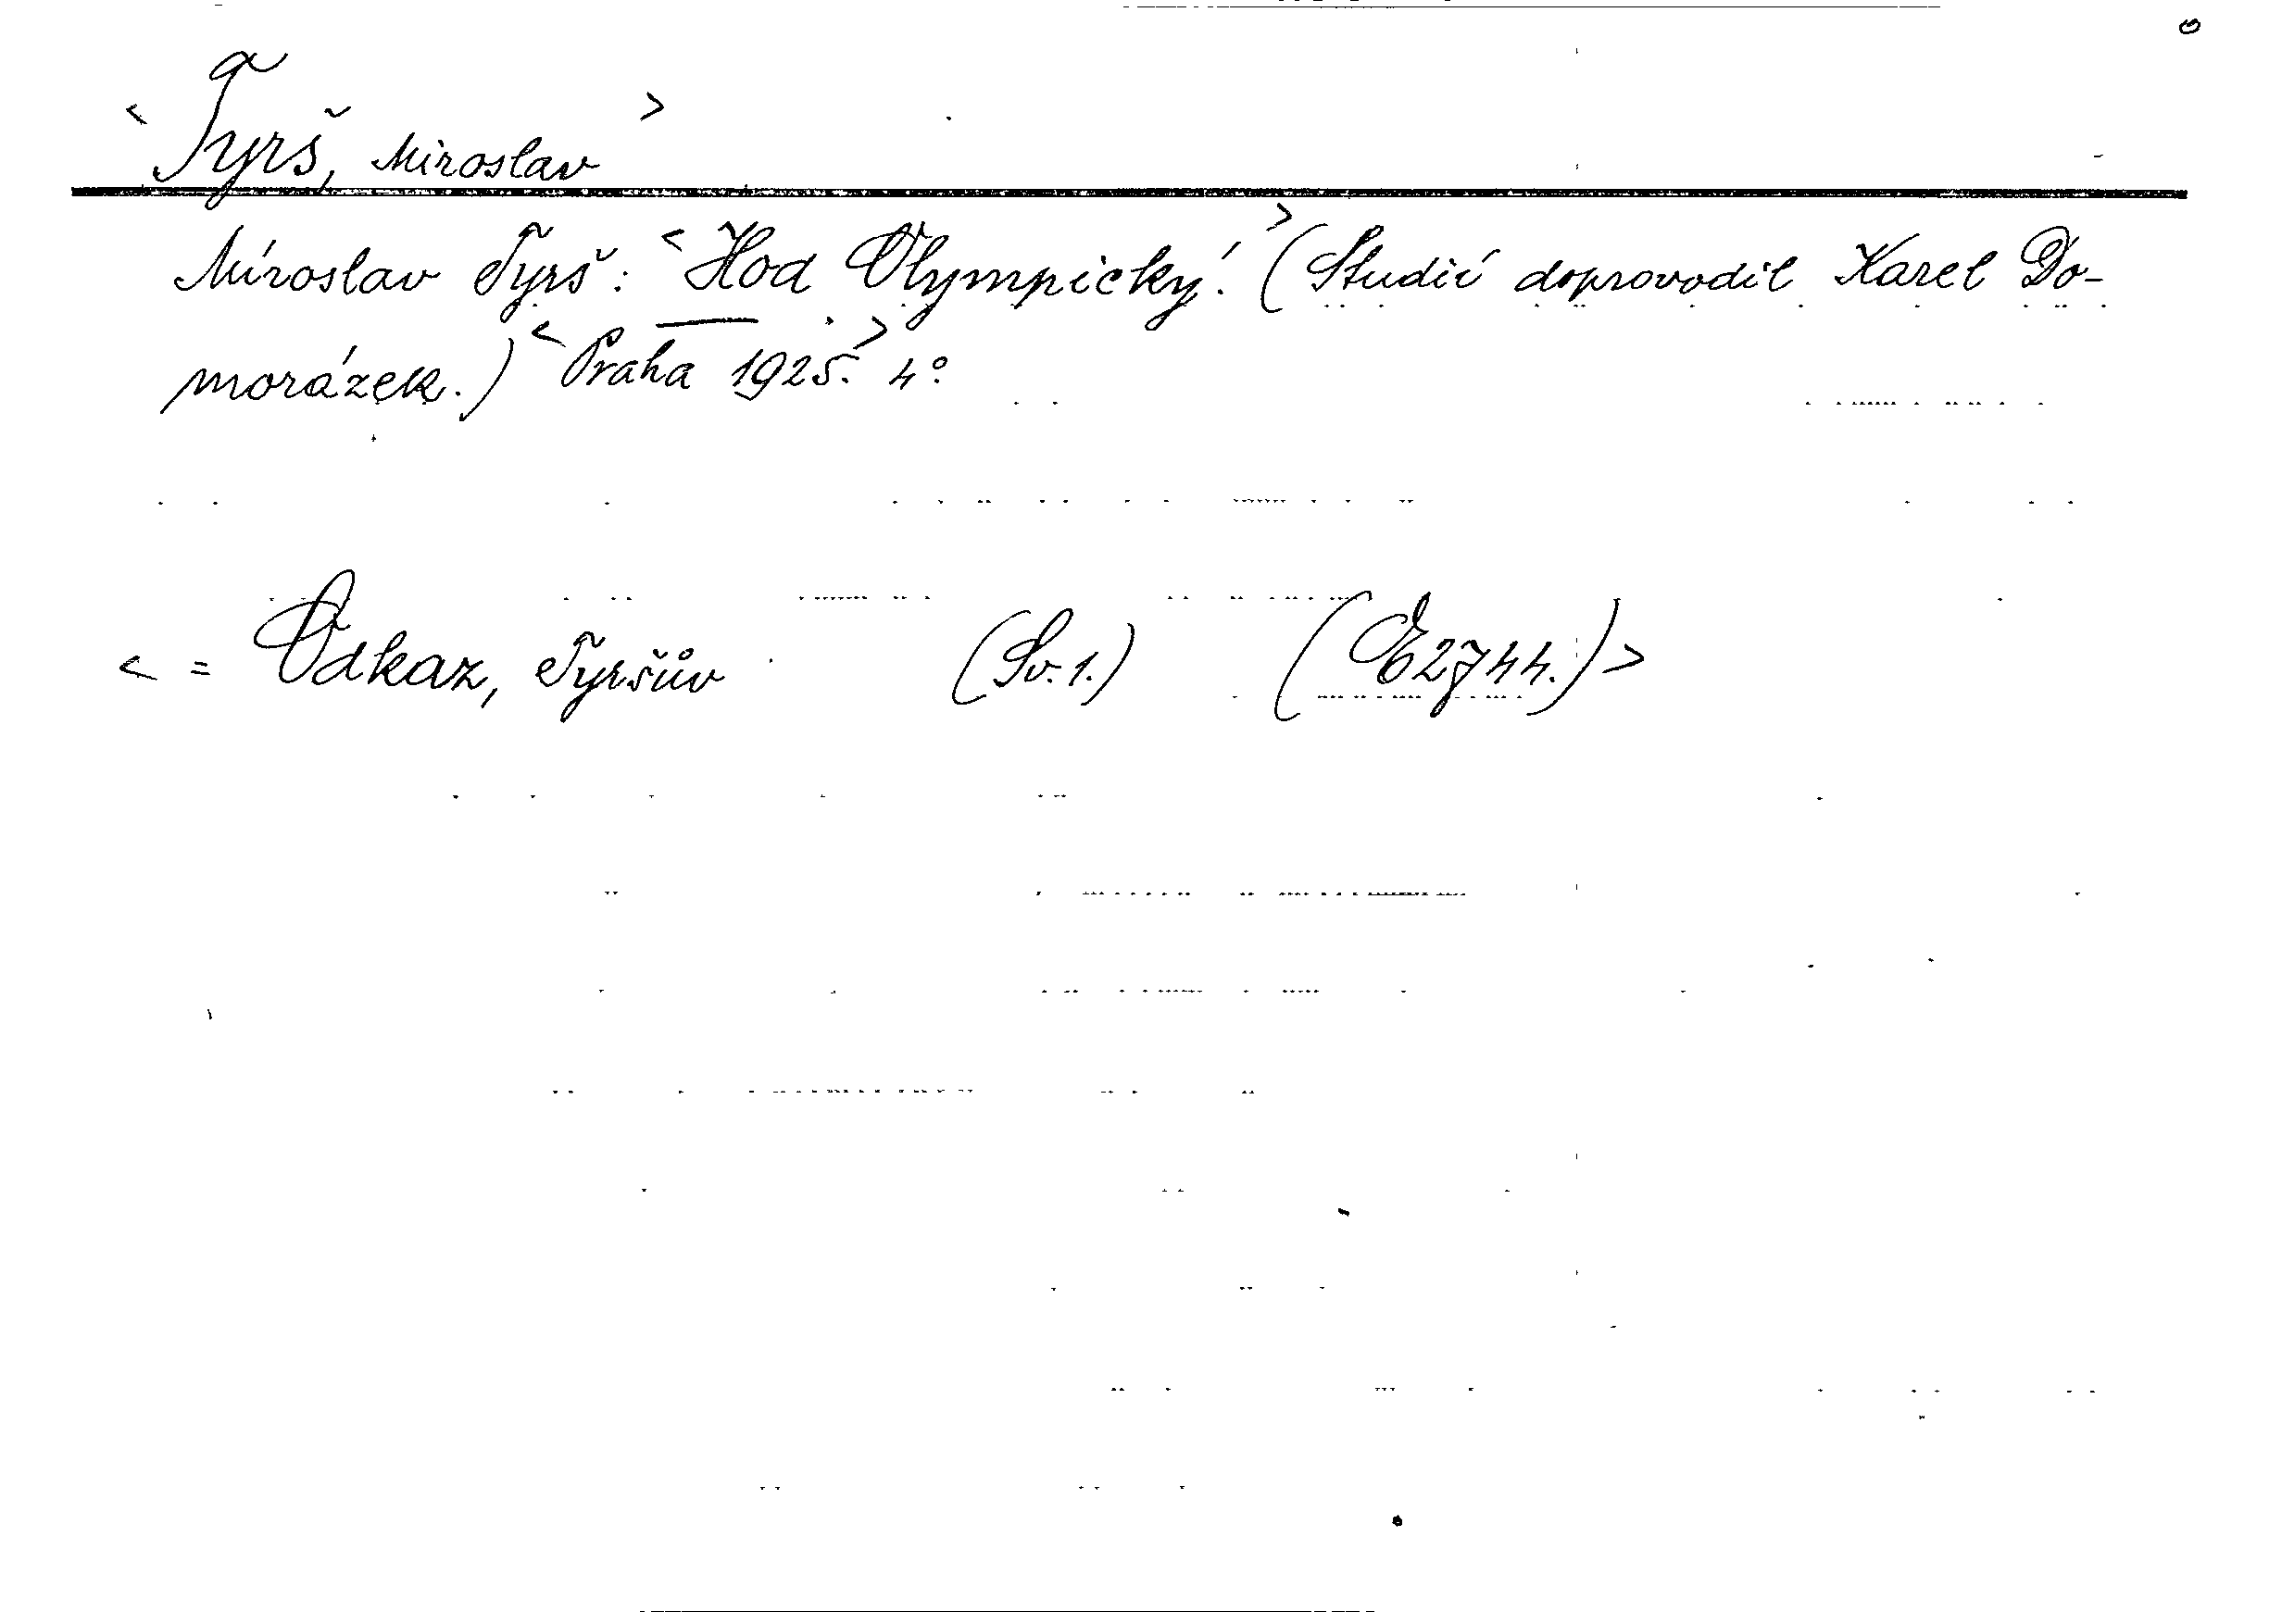 < Tyrš, Miroslav >
Miroslav Tyrš: < Hod Olympický. > (Studií doprovodil Karel Do-
morázek.) < Praha 1925. > 4°.
< = Odkaz, Tyršův (Sv. 1.) (E2744.) >